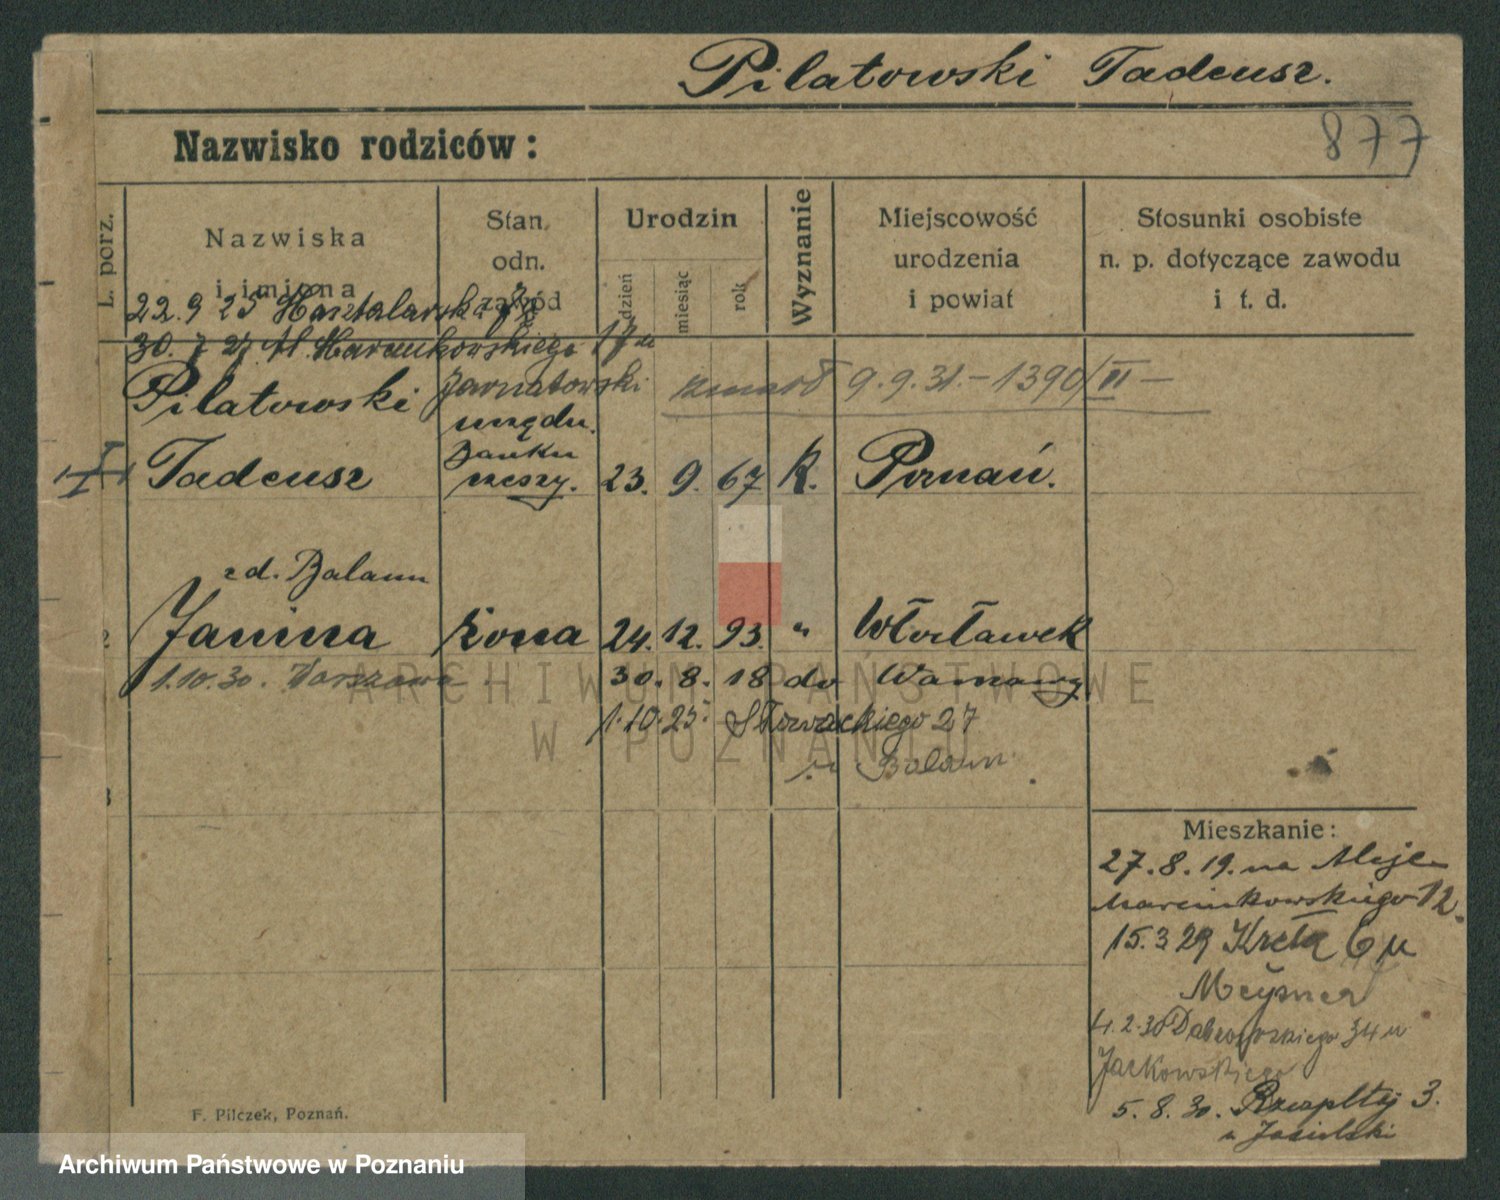 Pilatowski Tadeusz.
877
Nazwisko rodziców:
L. porz.
Nazwiska
i imiona
Stan.
odn.
zawód
Urodzin
dzień
miesiąc
rok
Wyznanie
Miejscowość
urodzenia
i powiat
Stosunki osobiste
n. p. dotyczące zawodu
i t. d.
22.9 25
30. 7 27 Al. Marcinkowskiego
Pilatowski
zmarł 9.9.31.-1390/VI-
urzędn.
Banku
Tadeusz
rzeszy. 23. 9. 67 K. Poznań.
zd. Balann
Janina żona 24. 12. 93. " Włocławek
1.10.30. Warszawa.
30. 8. 18 do Warszawy
1.10.25. Słowackiego 27
u Balann
Mieszkanie:
27.8.19. na Aleje
Marcinkowskiego 12.
15.3 29 Kręta 6 u
Meysner
4.2.30 Dabrowskiego 34 u
Jackowskiego
5.8.30. Rzeaplltej 3.
u Jasielski
F. Pilczek, Poznań.
ARCHIWUM PAŃSTWOWE
W POZNANIU
Archiwum Państwowe w Poznaniu